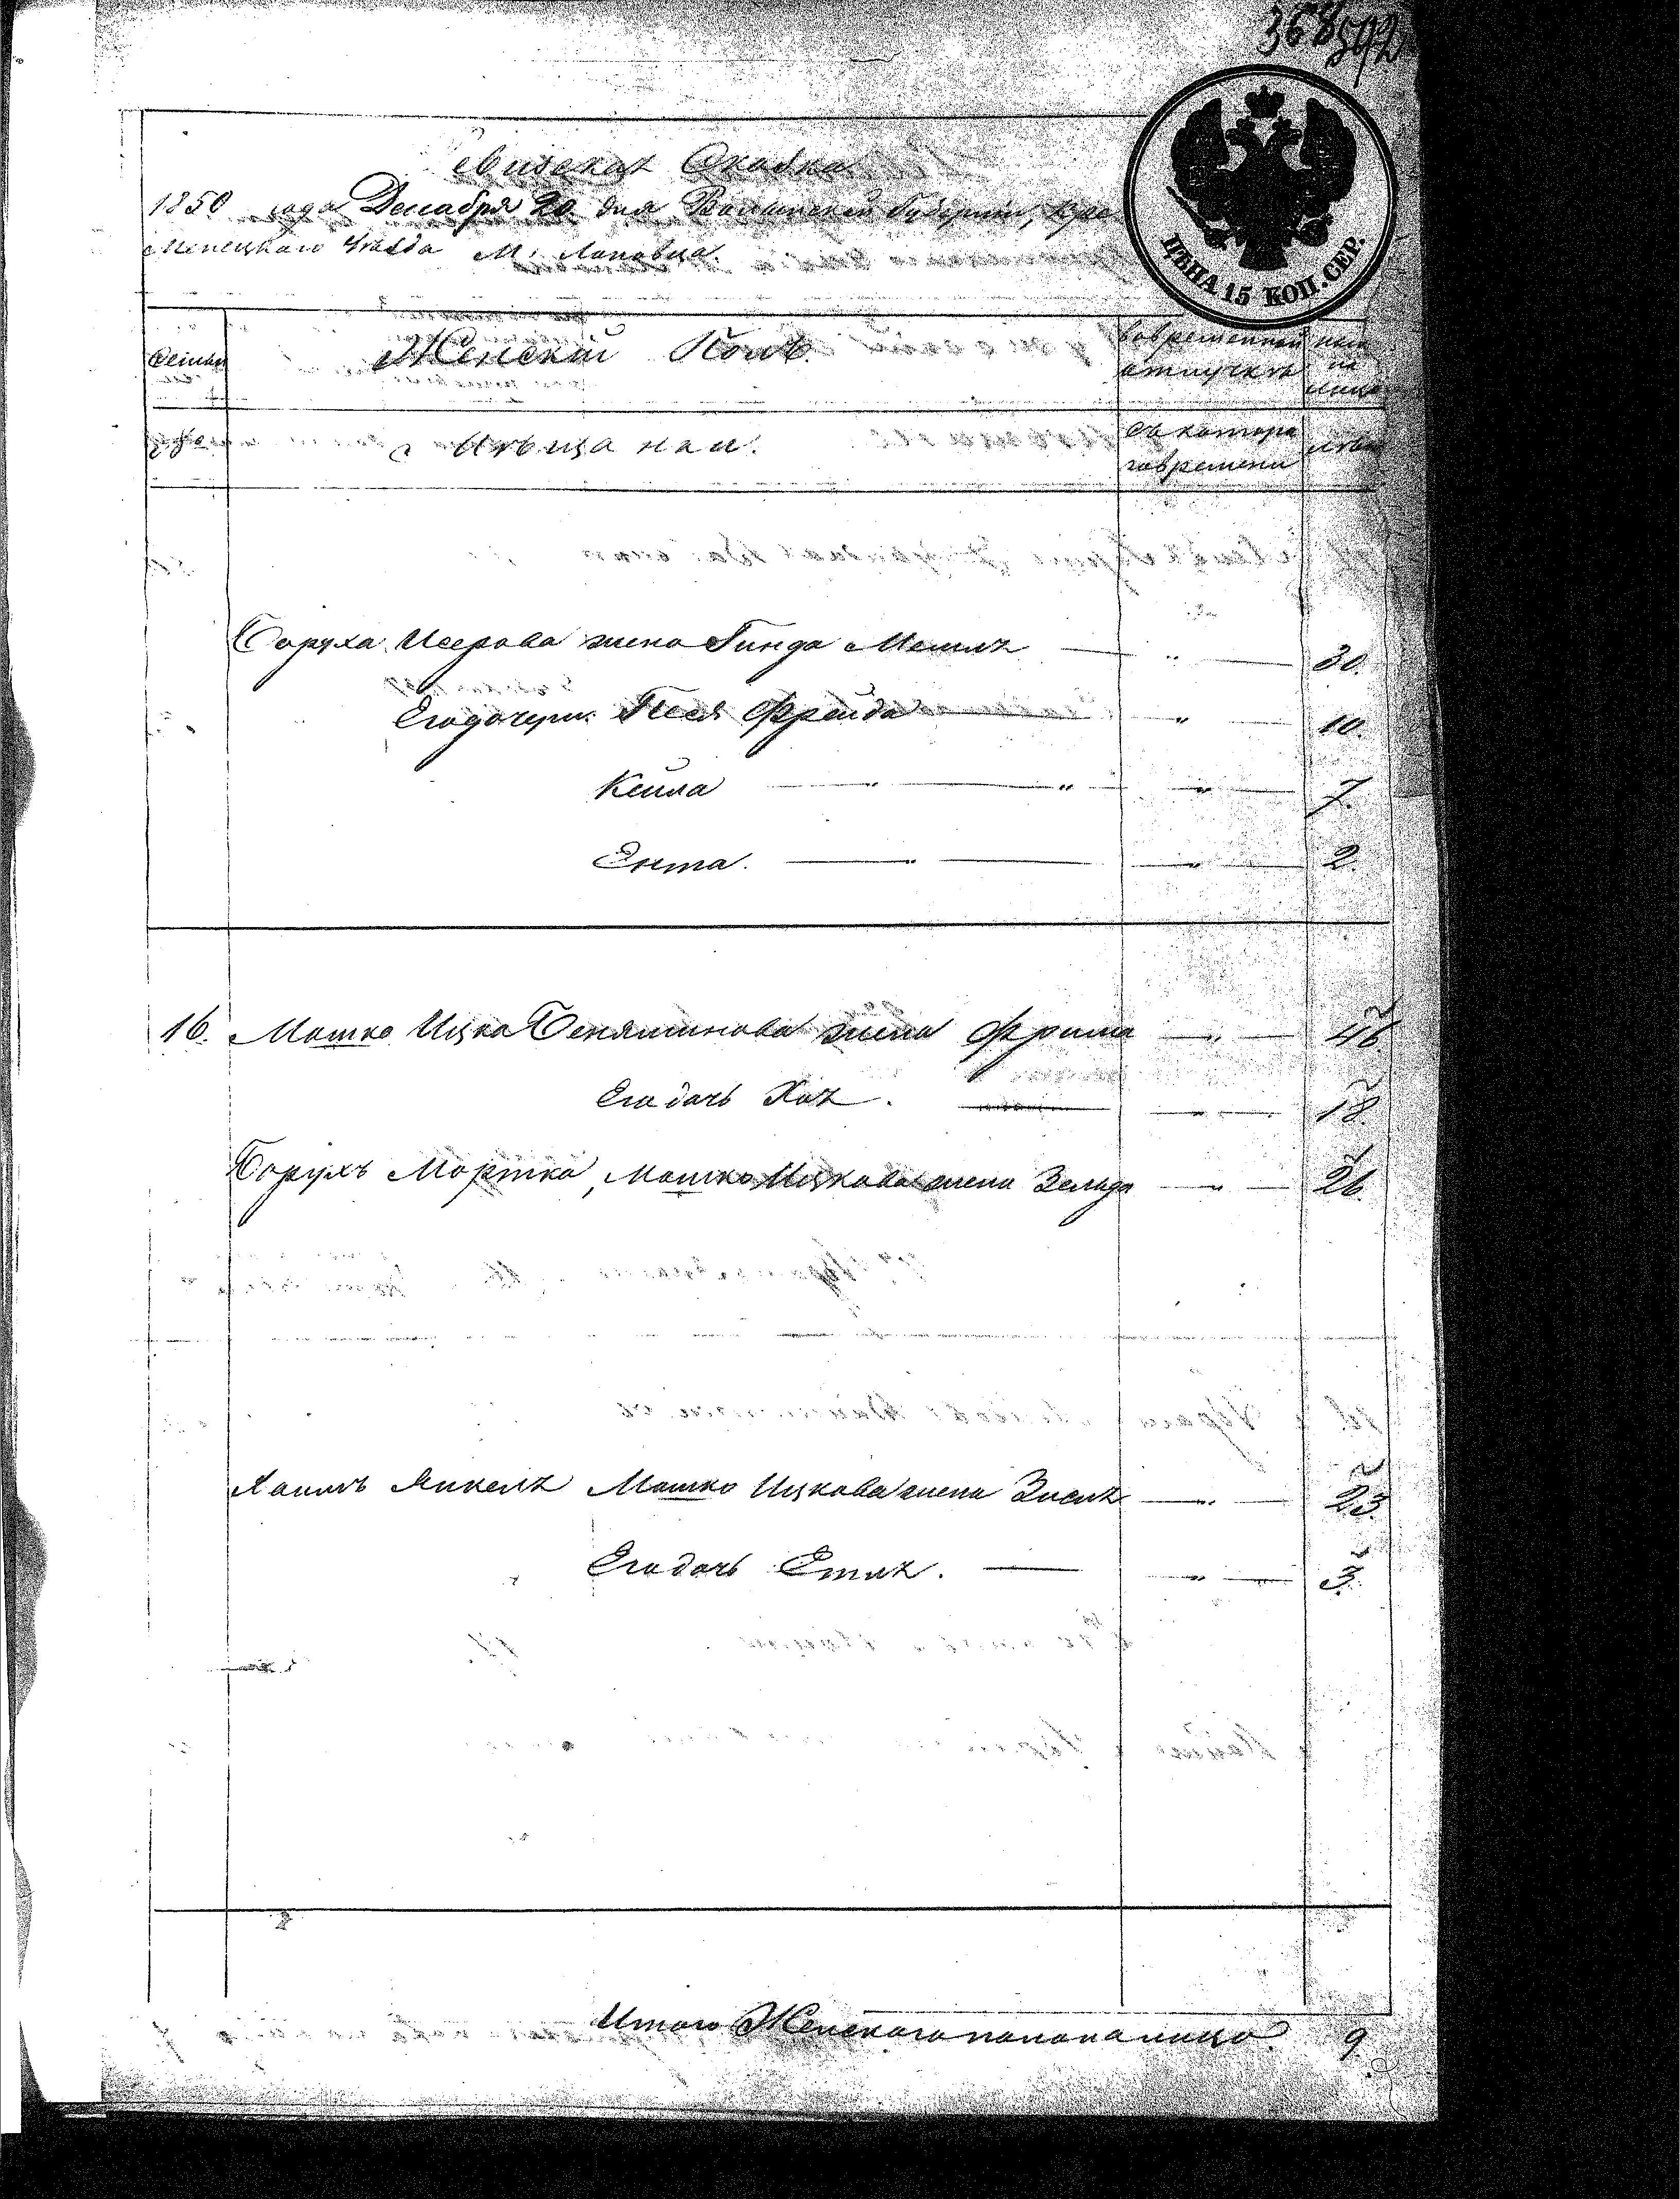 368 592
Ревизская Сказка
1850 года Декабря 20 дня Волынской Губернии, Кре
менецкаго Уезда М. Лановца.
ЦѢНА 15 КОП. СЕР.
Семьи
Женский Полъ.
Вовременной
отлучке
ныне
на
лицо
Мещанки.
Съ которо
го времени
лета
Боруха Иосрова жена Гинда Меиля " 30.
Его дочери Песя Фрейда " 10.
Кейла " " " 7.
Ента. " " 2.
16. Мошко Ицка Беняминова жена Фрима " 46.
Его дочь Хая. " 18.
Борухъ Мортка, Мошко Ицкова жена Зельда " 26.
Хаимъ Янкель Мошко Ицкова жена Зисля " 23.
Его дочь Етля. " 3.
Итого Женскаго пола на лицо 9